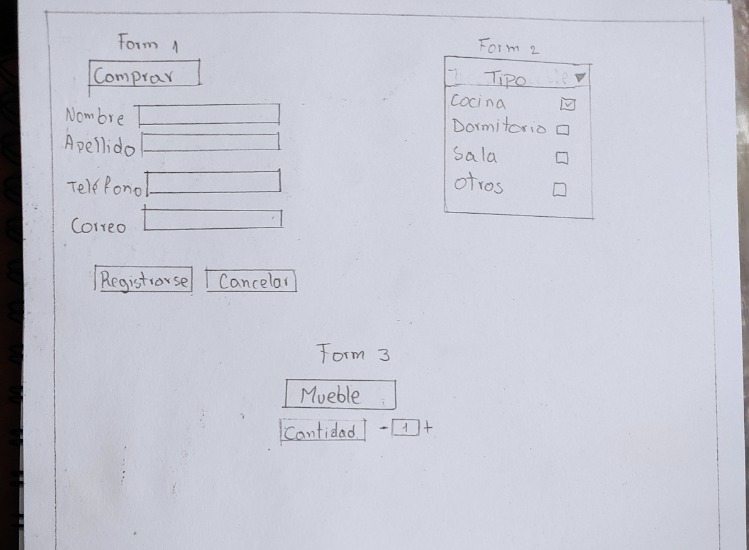 Form 1
Comprar
Nombre
Apellido
Teléfono
Correo
Registrarse Cancelar
Form 2
TIPO
Cocina
Dormitorio
Sala
Otros
Form 3
Mueble
Cantidad - 1 +